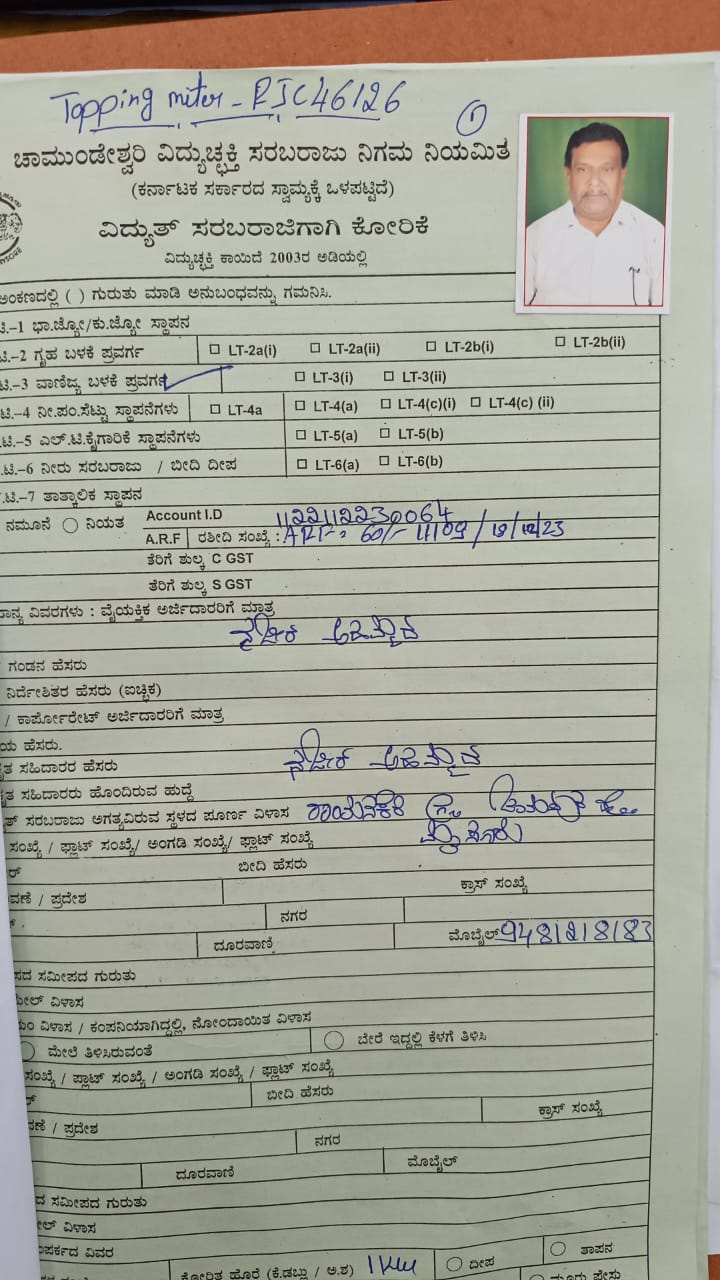 Topping meter - RJC46126
1
ಚಾಮುಂಡೇಶ್ವರಿ ವಿದ್ಯುಚ್ಛಕ್ತಿ ಸರಬರಾಜು ನಿಗಮ ನಿಯಮಿತ
(ಕರ್ನಾಟಕ ಸರ್ಕಾರದ ಸ್ವಾಮ್ಯಕ್ಕೆ ಒಳಪಟ್ಟಿದೆ)
ವಿದ್ಯುತ್ ಸರಬರಾಜಿಗಾಗಿ ಕೋರಿಕೆ
ವಿದ್ಯುಚ್ಛಕ್ತಿ ಕಾಯಿದೆ 2003ರ ಅಡಿಯಲ್ಲಿ
ಅಂಕಣದಲ್ಲಿ ( ) ಗುರುತು ಮಾಡಿ ಅನುಬಂಧವನ್ನು ಗಮನಿಸಿ.
ಟಿ-1 ಭಾ.ಜ್ಯೋ/ಕು.ಜ್ಯೋ ಸ್ಥಾಪನ
ಟಿ-2 ಗೃಹ ಬಳಕೆ ಪ್ರವರ್ಗ LT-2a(i) LT-2a(ii) LT-2b(i) LT-2b(ii)
ಟಿ-3 ವಾಣಿಜ್ಯ ಬಳಕೆ ಪ್ರವರ್ಗ LT-3(i) LT-3(ii)
.ಟಿ-4 ನೀ.ಪಂ.ಸೆಟ್ಟು ಸ್ಥಾಪನೆಗಳು LT-4a LT-4(a) LT-4(c)(i) LT-4(c) (ii)
.ಟಿ-5 ಎಲ್.ಟಿ.ಕೈಗಾರಿಕೆ ಸ್ಥಾಪನೆಗಳು LT-5(a) LT-5(b)
.ಟಿ-6 ನೀರು ಸರಬರಾಜು / ಬೀದಿ ದೀಪ LT-6(a) LT-6(b)
.ಟಿ-7 ತಾತ್ಕಾಲಿಕ ಸ್ಥಾಪನ
ನಮೂನೆ ನಿಯತ Account I.D 1122112230064
A.R.F ರಶೀದಿ ಸಂಖ್ಯೆ : ART-: 60/- 11109 / 19/12/23
ತೆರಿಗೆ ಶುಲ್ಕ C GST
ತೆರಿಗೆ ಶುಲ್ಕ S GST
ವಿವರಗಳು : ವೈಯಕ್ತಿಕ ಅರ್ಜಿದಾರರಿಗೆ ಮಾತ್ರ
ಗಂಡನ ಹೆಸರು
ನಿರ್ದೇಶಿತರ ಹೆಸರು (ಐಚ್ಛಿಕ)
/ ಕಾರ್ಪೋರೇಟ್ ಅರ್ಜಿದಾರರಿಗೆ ಮಾತ್ರ
ಯ ಹೆಸರು.
ಸಹಿದಾರರ ಹೆಸರು
ಸಹಿದಾರರು ಹೊಂದಿರುವ ಹುದ್ದೆ
ಸರಬರಾಜು ಅಗತ್ಯವಿರುವ ಸ್ಥಳದ ಪೂರ್ಣ ವಿಳಾಸ
ಸಂಖ್ಯೆ / ಫ್ಲಾಟ್ ಸಂಖ್ಯೆ/ ಅಂಗಡಿ ಸಂಖ್ಯೆ/ ಫ್ಲಾಟ್ ಸಂಖ್ಯೆ ಮೈಸೂರು
ಬೀದಿ ಹೆಸರು
ವಣೆ / ಪ್ರದೇಶ ಕ್ರಾಸ್ ಸಂಖ್ಯೆ
ನಗರ
ದೂರವಾಣಿ ಮೊಬೈಲ್ 9481218183
ಸಮೀಪದ ಗುರುತು
ವಿಳಾಸ
ವಿಳಾಸ / ಕಂಪನಿಯಾಗಿದ್ದಲ್ಲಿ, ನೋಂದಾಯಿತ ವಿಳಾಸ
ಮೇಲೆ ತಿಳಿಸಿರುವಂತೆ ಬೇರೆ ಇದ್ದಲ್ಲಿ ಕೆಳಗೆ ತಿಳಿಸಿ
ಸಂಖ್ಯೆ / ಪ್ಲಾಟ್ ಸಂಖ್ಯೆ / ಅಂಗಡಿ ಸಂಖ್ಯೆ / ಫ್ಲಾಟ್ ಸಂಖ್ಯೆ
ಬೀದಿ ಹೆಸರು
ವಣೆ / ಪ್ರದೇಶ ಕ್ರಾಸ್ ಸಂಖ್ಯೆ
ನಗರ
ದೂರವಾಣಿ ಮೊಬೈಲ್
ದ ಸಮೀಪದ ಗುರುತು
ವಿಳಾಸ
ವಿವರ
ಕೋರಿತ ಹೊರೆ (ಕೆ.ಡಬ್ಲು / ಅ.ಶ) ದೀಪ ತಾಪನ